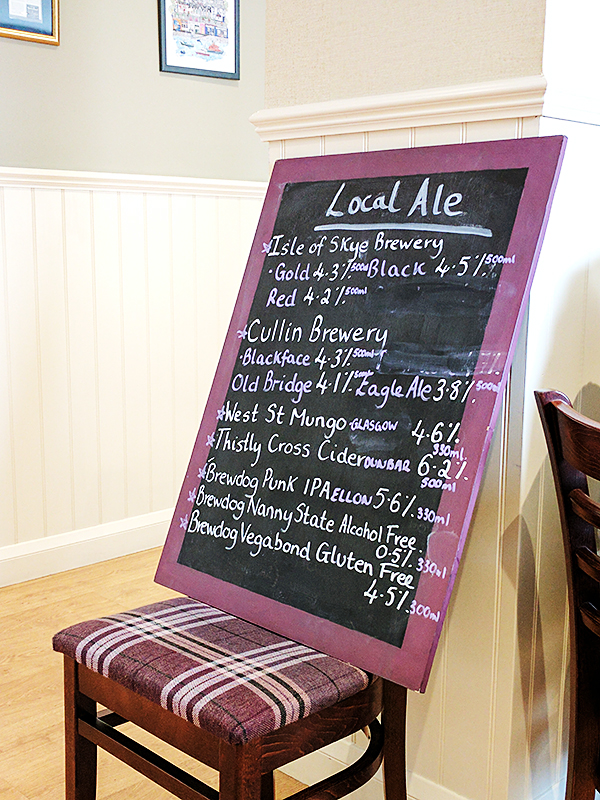 Local Ale
Isle of Skye Brewery
Gold 4.3% 500ml Black 4.5% 500ml
Red 4.2% 500ml
Cullin Brewery
Blackface 4.3% 500ml
Old Bridge 4.1% 500ml Eagle Ale 3.8% 500ml
West St Mungo GLASGOW 4.6%
330ml
Thistly Cross Cider DUNBAR 6.2%
500ml
Brewdog Punk IPA ELLON 5.6% 330ml
Brewdog Nanny State Alcohol Free
0.5% 330ml
Brewdog Vegabond Gluten Free
4.5% 300ml